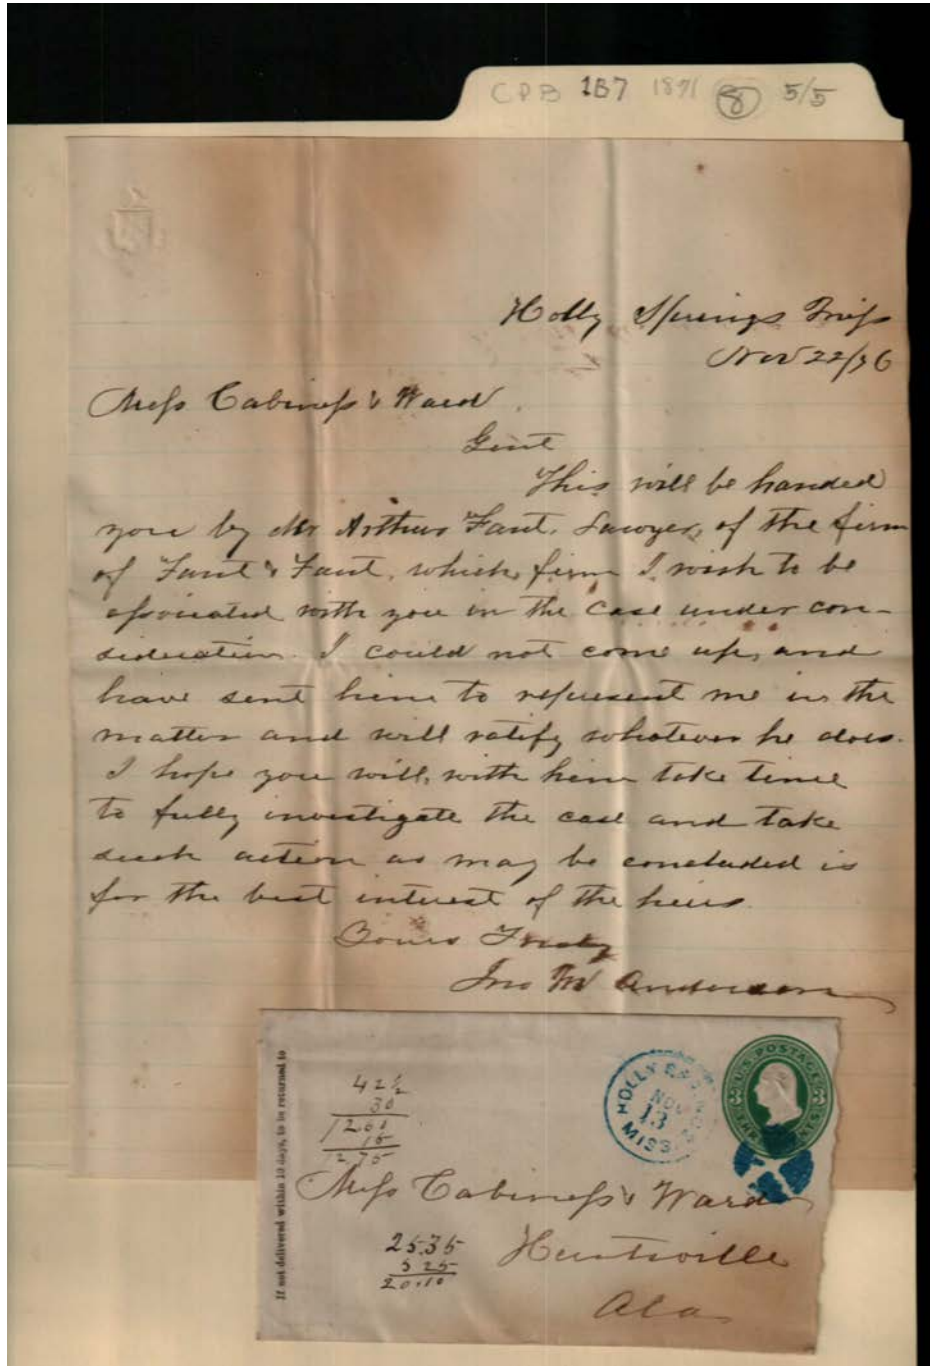 CPB 1B7 1871 8 5/5
Holly Springs Miss
Nov 22/76
Mess Cabiness & Ward
Gent
This will be handed
you by Mr Arthur Fant, Lawyer, of the firm
of Fant & Fant, which firm I wish to be
associated with you in the case under con-
sideration. I could not come up, and
have sent him to represent me in the
matter and will ratify whatever he does.
I hope you will, with him take time
to fully investigate the case and take
such action as may be concluded is
for the best interest of the heirs.
Yours Truly
Jno M Anderson
If not delivered within 10 days, to be returned to
42½
30
1260
15
1275
HOLLY SPRINGS
NOV
13
MISS.
U.S. POSTAGE
THREE CENTS
Mess Cabiness & Ward
25.35
5 25
20.10
Huntsville
Ala